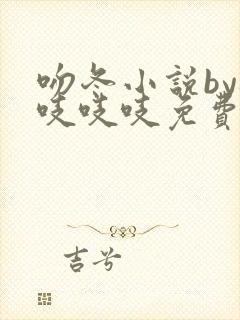 吻冬小説by
吱吱吱免費
吉兮